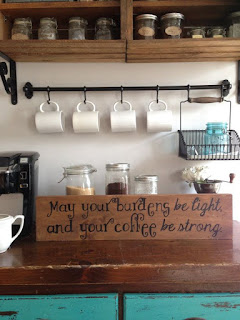 May your burdens be light,
and your coffee be strong.